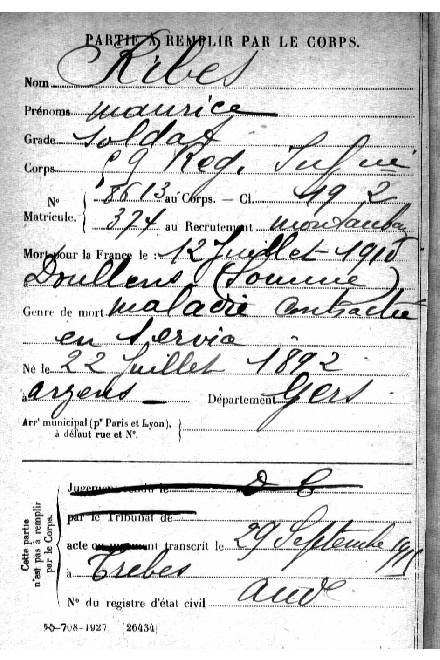 PARTIE À REMPLIR PAR LE CORPS.
Nom Ribes
Prénoms maurice
Grade soldat
Corps Reg.
N° 8613 au Corps. — Cl. 19 2
Matricule. 374 au Recrutement montauban
Mort pour la France le : 12 Juillet
Doullens (Somme)
Genre de mort maladie contractée
en Service
Né le 22 Juillet 1892
à argens Département Gers
Arr' municipal (p' Paris et Lyon),
à défaut rue et N°.
Cette partie
n'est pas à remplir
par le Corps.
Jugement rendu le D C
par le Tribunal de
acte ou jugement transcrit le 29 Septembre
à Trebes
aude
N° du registre d'état civil
708-1927. [26434]